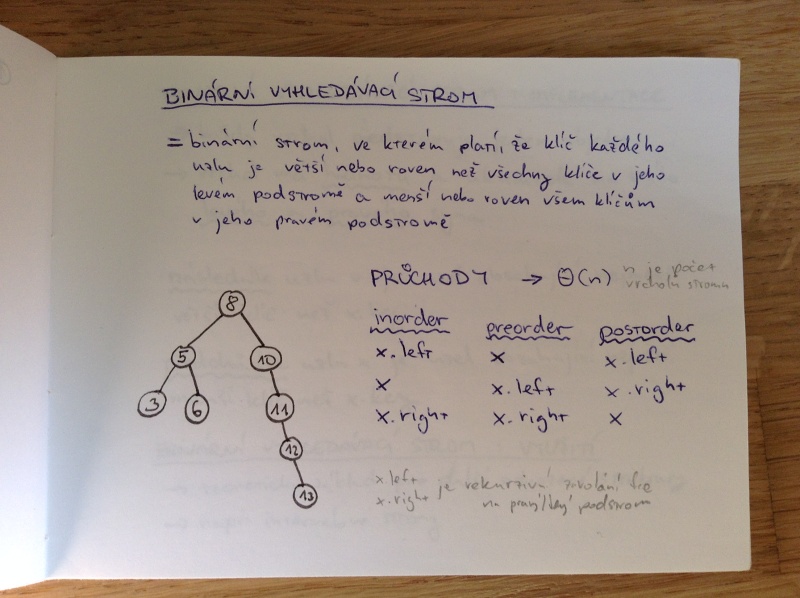 BINÁRNÍ VYHLEDÁVACÍ STROM
= binární strom, ve kterém platí, že klíč každého
uzlu je větší nebo roven než všechny klíče v jeho
levém podstromě a menší nebo roven všem klíčům
v jeho pravém podstromě
PRŮCHODY → Θ(n) n je počet
vrcholů stromu
inorder preorder postorder
x.left x x.left
x x.left x.right
x.right x.right x
8
5 10
3 6 11
12
13
x.left
x.right je rekurzivní zavolání fce
na pravý/levý podstrom